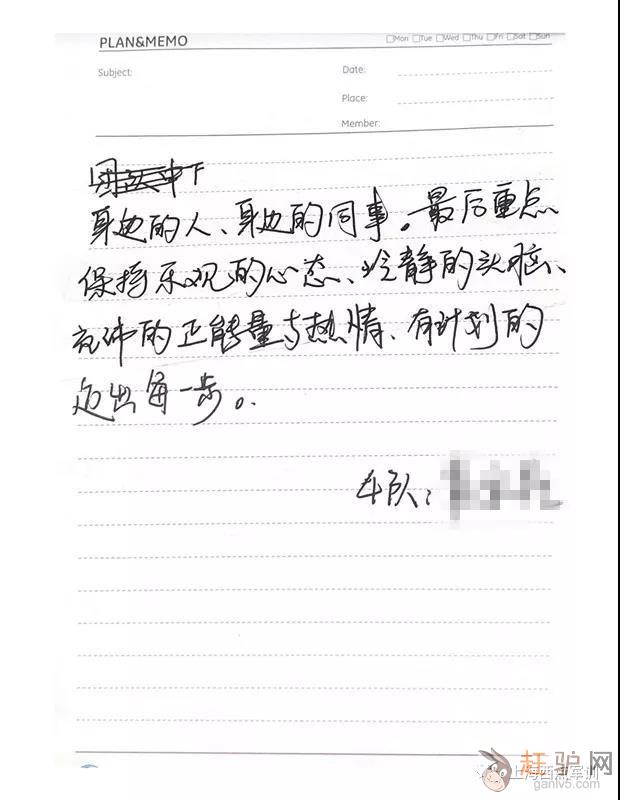 PLAN&MEMO
□Mon □Tue □Wed □Thu □Fri □Sat □Sun
Subject:
Date:
Place:
Member:
下
身边的人、身边的同事。最后重点
保持乐观的心态、冷静的头脑、
充沛的正能量与热情、有计划的
迈出每一步。
队:
上海西点军训
赶驴网
ganlv5.com